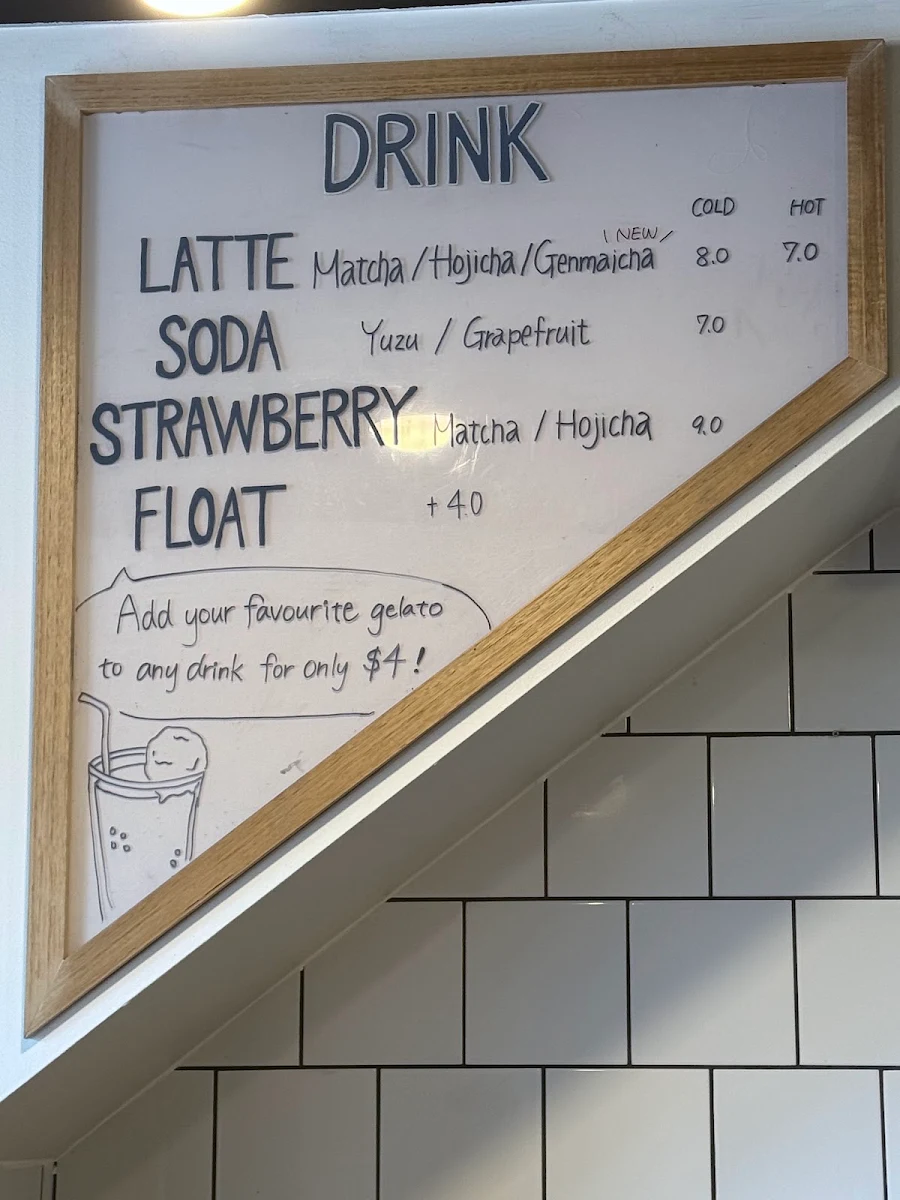 DRINK
COLD HOT
NEW
LATTE Matcha / Hojicha / Genmaicha 8.0 7.0
SODA Yuzu / Grapefruit 7.0
STRAWBERRY Matcha / Hojicha 9.0
FLOAT + 4.0
Add your favourite gelato
to any drink for only $4!